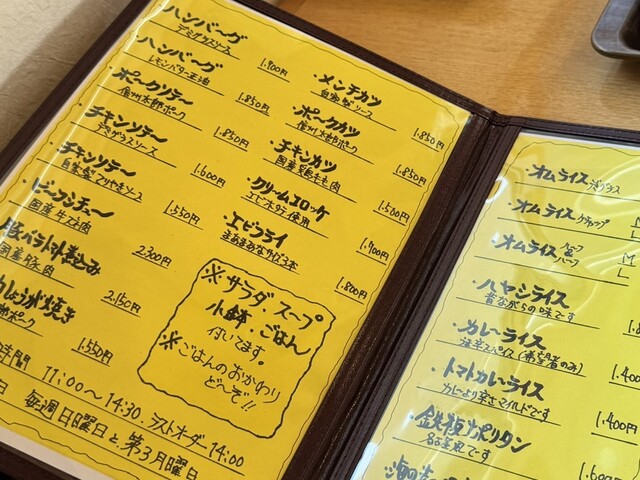 ハンバーグ
デミグラスソース
1.900円
ハンバーグ
レモンバター正油
1.850円
ポークソテー
信州太郎ポーク
1.850円
チキンソテー
デミグラスソース
1.600円
チキンソテー
自家製てりやきソース
1.550円
ビーフシチュー
国産牛ほほ肉
2.300円
豚バラトロトロ煮込み
国産豚肉
2.150円
しょうが焼き
郎ポーク
1.550円
・メンチカツ
自家製ソース
1.850円
・ポークカツ
信州太郎ポーク
1.850円
・チキンカツ
国産鶏もも肉
1.500円
・クリームコロッケ
エビホタテ使用
1.700円
・エビフライ
まあまあなサイズ3本
1.800円
※サラダ・スープ
小鉢・ごはん
付いてます。
※ごはんのおかわり
ど〜ぞ!!
時間 11:00〜14:30 ラストオーダー14:00
日 毎週日曜日と第3月曜日
・オムライス
・オムライス ケチャップ
L
・オムライス ハーフ&ハーフ
M
L
・ハヤシライス
昔ながらの味です
1.
・カレーライス
1.
・トマトカレーライス
カレーより辛さマイルドです
1.400円
・鉄板ナポリタン
1.400
1.600